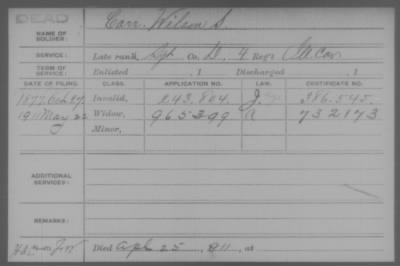 DEAD
NAME OF SOLDIER: Carr, Wilson S.
SERVICE: Late rank, Sgt Co. D, 4 Reg't Cav
TERM OF SERVICE: Enlisted , 1 Discharged , 1
DATE OF FILING. CLASS. APPLICATION NO. LAW. CERTIFICATE NO.
1877 Oct Invalid, 243,804. 386.545.
1911 May 22 Widow, 965399 732173
Minor,
ADDITIONAL SERVICES:
REMARKS:
Died Apl 25, 1911, at